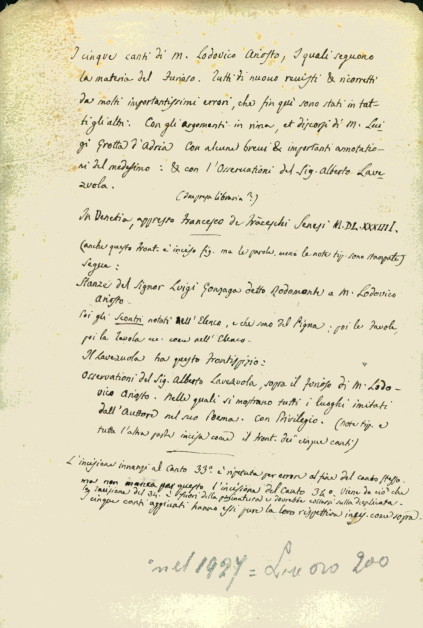 I cinque canti di M. Lodovico Ariosto, I quali seguono
la materia del Furioso. Tutti di nuovo revisti & ricorretti
da molti importantissimi errori, che fin qui sono stati in tut-
ti gli altri. Con gli argomenti in rima, et discorsi di M. Lui
gi Grotta d'Adria Con alcune brevi & importanti annotatio-
ni del medesimo: & con l'Osservationi del Sig. Alberto Lave-
zuola.
(Impresa libraria?)
In Venetia, appresso Francesco de Franceschi Senesi M.D.LXXXIIII.
(anche questo front. è inciso fig. ma le parole, meno le note tip. sono stampate)
Segue:
Stanze del Signor Luigi Gonzaga detto Rodomonte a M. Lodovico
Ariosto.
Poi gli Scontri notati nell'Elenco, e che sono del Pigna: poi le Tavole,
poi la Tavola ec. come nell'Elenco.
Il Lavezuola ha questo frontispizio:
Osservationi del Sig. Alberto Lavezuola, sopra il furioso di M. Lodo-
vico Ariosto. Nelle quali si mostrano tutti i luoghi imitati
dall'Auttore nel suo Poema. Con Privilegio. (note tip. e
tutta l'altra posta incisa come il front. dei cinque canti)
L'incisione innanzi al Canto 33º è ripetuta per errore al fine del canto stesso.
ma non manca per questo l'incisione del Canto 34º. Viene da ciò che
l'incisione del 34. è fuori della e dovrebbe collarsi sulla duplicata.
I cinque canti aggiunti hanno essi pure la loro rispettiva incis. come sopra.
nel 1927 = Lire oro 200